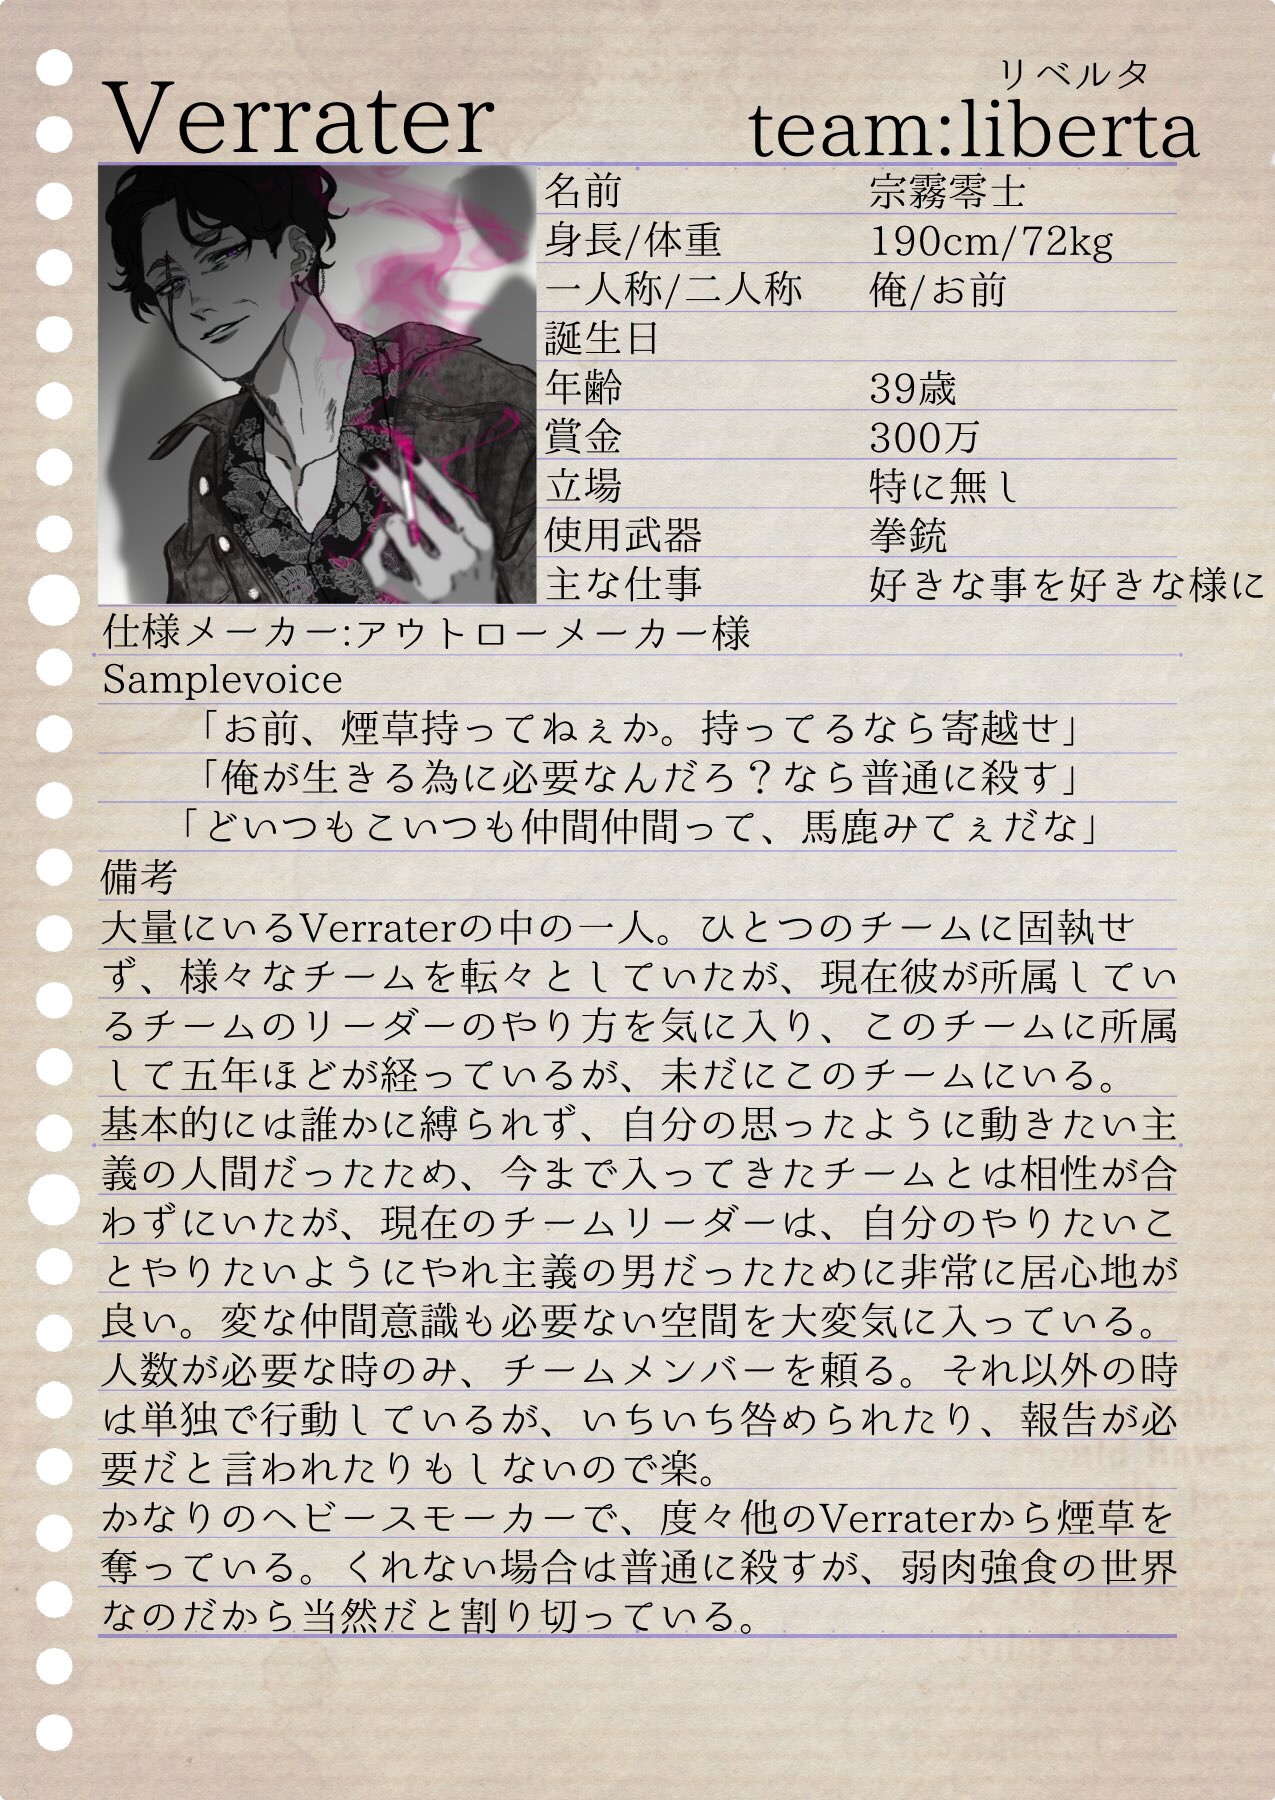 リベルタ
Verrater team:liberta
名前 宗霧零士
身長/体重 190cm/72kg
一人称/二人称 俺/お前
誕生日
年齢 39歳
賞金 300万
立場 特に無し
使用武器 拳銃
主な仕事 好きな事を好きな様に
仕様メーカー:アウトローメーカー様
Samplevoice
「お前、煙草持ってねぇか。持ってるなら寄越せ」
「俺が生きる為に必要なんだろ？なら普通に殺す」
「どいつもこいつも仲間仲間って、馬鹿みてぇだな」
備考
大量にいるVerraterの中の一人。ひとつのチームに固執せ
ず、様々なチームを転々としていたが、現在彼が所属してい
るチームのリーダーのやり方を気に入り、このチームに所属
して五年ほどが経っているが、未だにこのチームにいる。
基本的には誰かに縛られず、自分の思ったように動きたい主
義の人間だったため、今まで入ってきたチームとは相性が合
わずにいたが、現在のチームリーダーは、自分のやりたいこ
とやりたいようにやれ主義の男だったために非常に居心地が
良い。変な仲間意識も必要ない空間を大変気に入っている。
人数が必要な時のみ、チームメンバーを頼る。それ以外の時
は単独で行動しているが、いちいち咎められたり、報告が必
要だと言われたりもしないので楽。
かなりのヘビースモーカーで、度々他のVerraterから煙草を
奪っている。くれない場合は普通に殺すが、弱肉強食の世界
なのだから当然だと割り切っている。